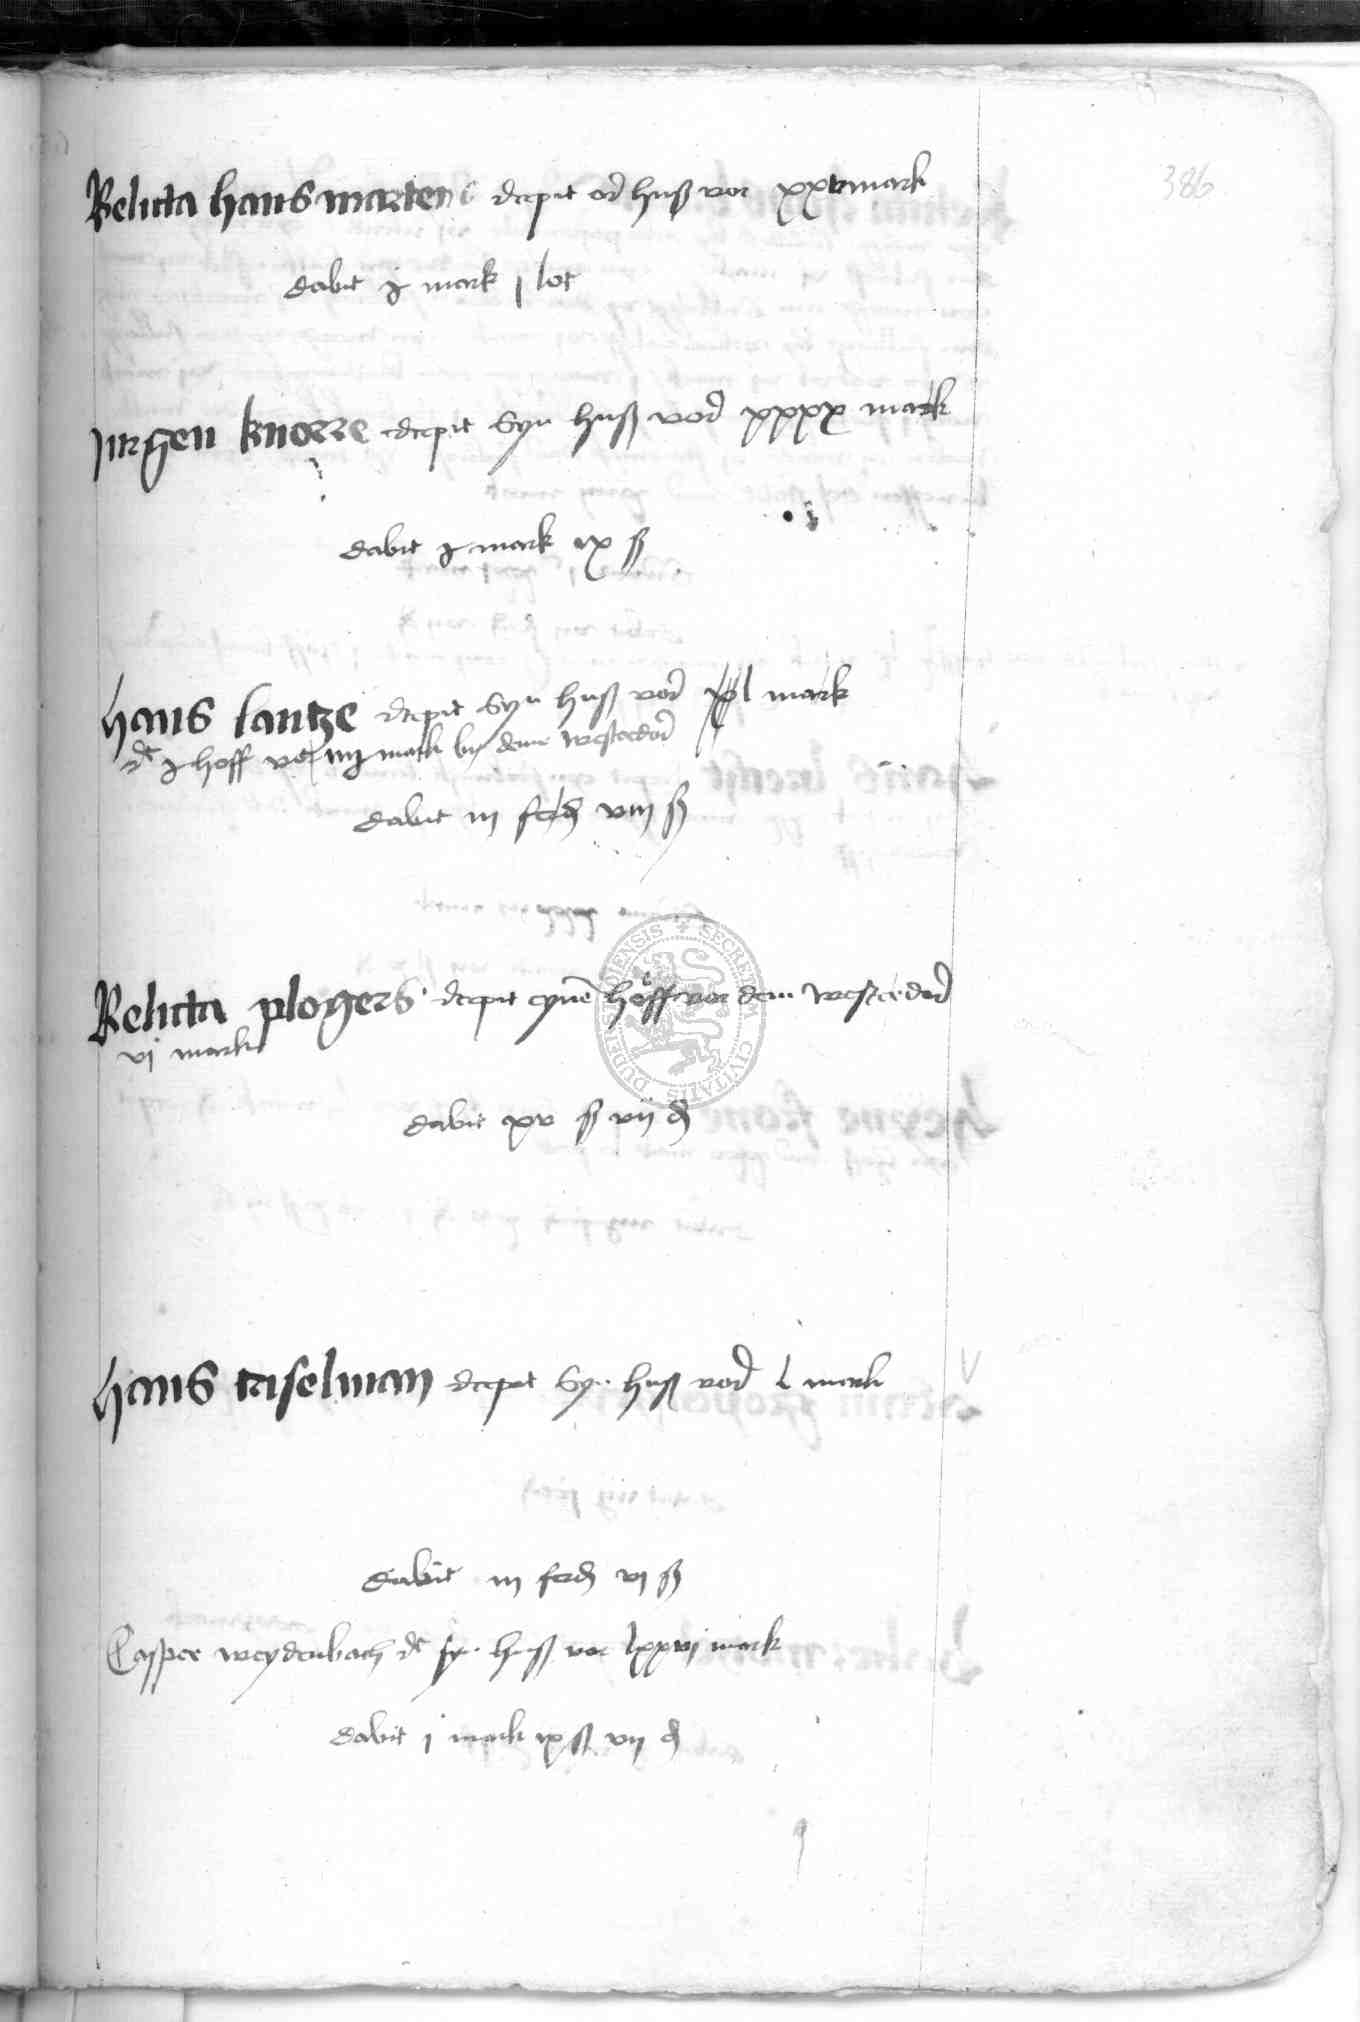 386
Relicta hans martens decpit or huß vor xxv mark
dabit j mark j lot
jurgen knorre decpit syn huß vor xxxx mark
dabit j mark ix ß
hans lantze decpit syn huß vor xl mark
dt j hoff vor iiij mark by deme westerdor
dabit iij ferd viij ß
Relicta plogers decpit eyne hoff vor dem westerdor
vj mark
dabit xv ß vij d
hans tiselman decpit syn huß vor l mark
dabit iij ferd vj ß
Casper weydenbach dt sy huß vor lxxvj mark
dabit j mark ix ß vij d
SECRETVM CIVITATIS DUDERSTADIENSIS